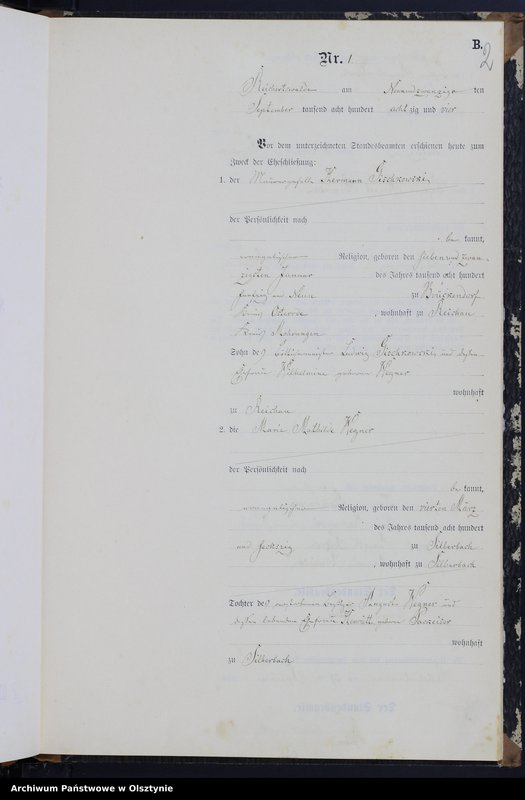 B.
2
Nr. 1
Reichertswalde am Neunundzwanzigsten
September tausend acht hundert achtzig und vier
Vor dem unterzeichneten Standesbeamten erschienen heute zum
Zweck der Eheschließung:
1. der Maurergeselle Hermann
der Persönlichkeit nach
be kannt,
evangelischer Religion, geboren den siebenundzwan-
zigsten Januar des Jahres tausend acht hundert
fünfzig und Neun zu Brückendorf
Kreis Osterode, wohnhaft zu Reichau
Kreis Mohrungen
Sohn des Ludwig und dessen
Ehefrau Wilhelmine geborene Wegner
wohnhaft
zu Reichau
2. die Marie Mathilde Wegner
der Persönlichkeit nach
be kannt,
evangelischer Religion, geboren den vierten März
des Jahres tausend acht hundert
und sechszig zu Silberbach
, wohnhaft zu Silberbach
Tochter des verstorbenen August Wegner und
dessen Ehefrau geborene
wohnhaft
zu Silberbach
Archiwum Państwowe w Olsztynie